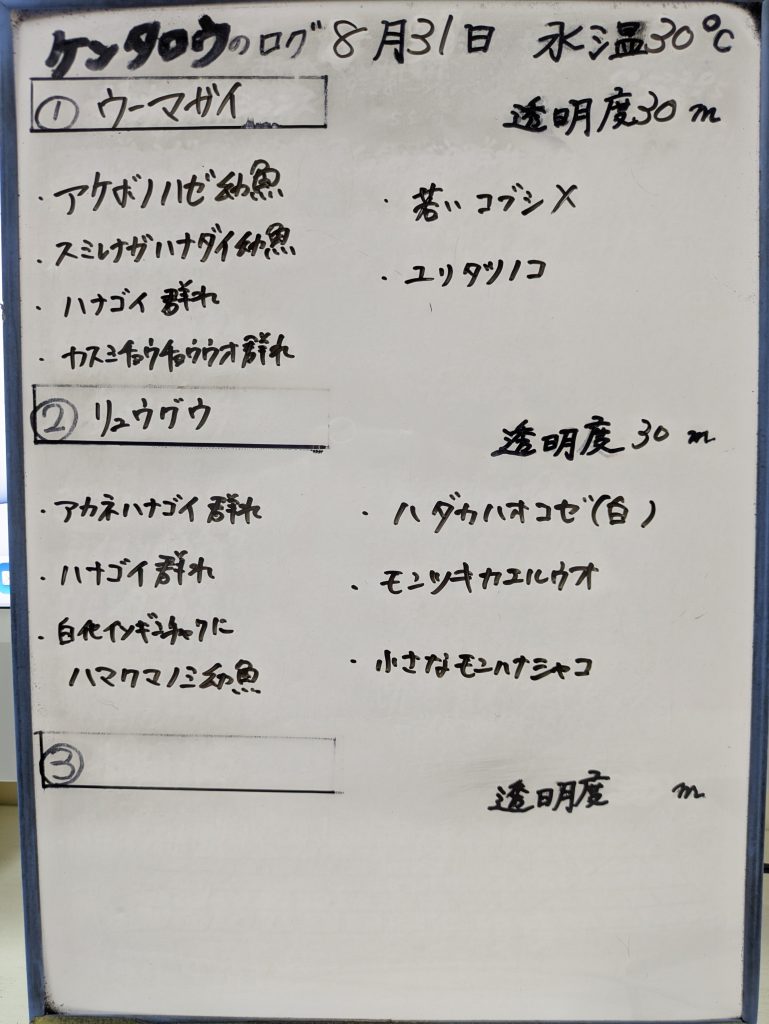 ケンタロウのログ 8月31日 水温30℃
① ウーマガイ
透明度30m
・アケボノハゼ幼魚
・スミレナガハナダイ幼魚
・ハナゴイ群れ
・カスミチョウチョウウオ群れ
・若いコブシメ
・ユリタツノコ
② リュウグウ
透明度30m
・アカネハナゴイ群れ
・ハナゴイ群れ
・白化イソギンチャクに
ハマクマノミ幼魚
・ハダカハオコゼ(白)
・モンツキカエルウオ
・小さなモンハナシャコ
③
透明度 m